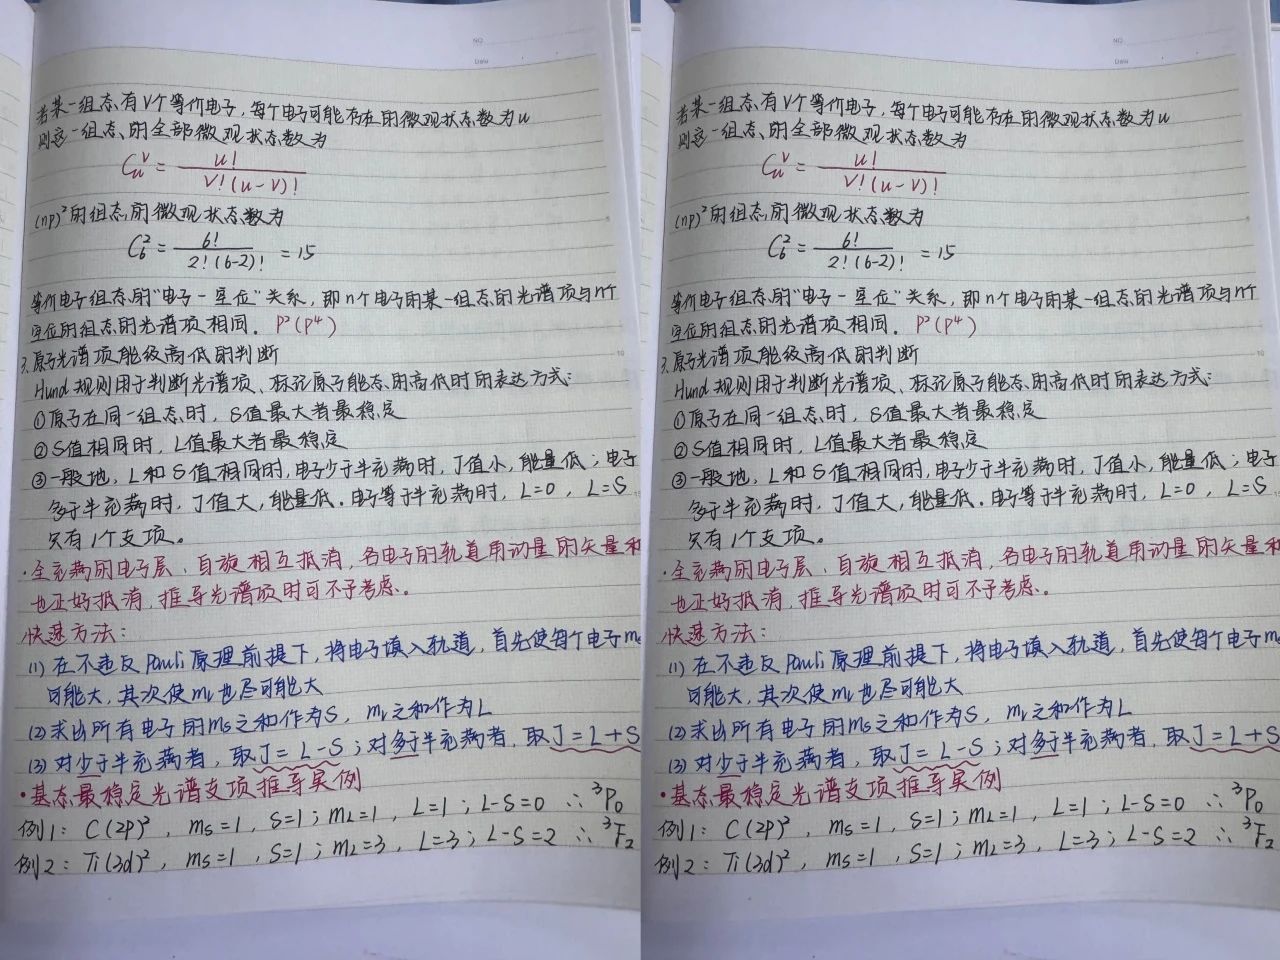 NO.
Date
若某一组态有v个等价电子，每个电子可能存在的微观状态数为u
则这一组态的全部微观状态数为
C_u^v = u! / v!(u-v)!
(np)²的组态的微观状态数为
C_6^2 = 6! / 2!(6-2)! = 15
等价电子组态的"电子-空位"关系，即n个电子的某一组态的光谱项与n个
空位的组态的光谱项相同。P²(P⁴)
3.原子光谱项能级高低的判断
Hund规则用于判断光谱项、标记原子能态的高低时的表达方式：
①原子在同一组态时，S值最大者最稳定
②S值相同时，L值最大者最稳定
③一般地，L和S值相同时，电子少于半充满时，J值小，能量低；电子
多于半充满时，J值大，能量低。电子等于半充满时，L=0，L=S
只有1个支项。
·全充满的电子层，自旋相互抵消，各电子的轨道角动量的矢量和
也正好抵消，推导光谱项时可不予考虑。
快速方法：
(1) 在不违反Pauli原理前提下，将电子填入轨道，首先使每个电子ms
可能大，其次使mL也尽可能大
(2)求出所有电子的ms之和作为S，mL之和作为L
(3) 对少于半充满者，取J=L-S；对多于半充满者，取J=L+S
·基态最稳定光谱支项推导实例
例1：C(2P)²，ms=1，S=1；mL=1，L=1；L-S=0 ∴ ³P₀
例2：Ti(3d)²，ms=1，S=1；mL=3，L=3；L-S=2 ∴ ³F₂
NO.
Date
若某一组态有v个等价电子，每个电子可能存在的微观状态数为u
则这一组态的全部微观状态数为
C_u^v = u! / v!(u-v)!
(np)²的组态的微观状态数为
C_6^2 = 6! / 2!(6-2)! = 15
等价电子组态的"电子-空位"关系，即n个电子的某一组态的光谱项与n个
空位的组态的光谱项相同。P²(P⁴)
3.原子光谱项能级高低的判断
Hund规则用于判断光谱项、标记原子能态的高低时的表达方式：
①原子在同一组态时，S值最大者最稳定
②S值相同时，L值最大者最稳定
③一般地，L和S值相同时，电子少于半充满时，J值小，能量低；电子
多于半充满时，J值大，能量低。电子等于半充满时，L=0，L=S
只有1个支项。
·全充满的电子层，自旋相互抵消，各电子的轨道角动量的矢量和
也正好抵消，推导光谱项时可不予考虑。
快速方法：
(1) 在不违反Pauli原理前提下，将电子填入轨道，首先使每个电子ms
可能大，其次使mL也尽可能大
(2)求出所有电子的ms之和作为S，mL之和作为L
(3) 对少于半充满者，取J=L-S；对多于半充满者，取J=L+S
·基态最稳定光谱支项推导实例
例1：C(2P)²，ms=1，S=1；mL=1，L=1；L-S=0 ∴ ³P₀
例2：Ti(3d)²，ms=1，S=1；mL=3，L=3；L-S=2 ∴ ³F₂